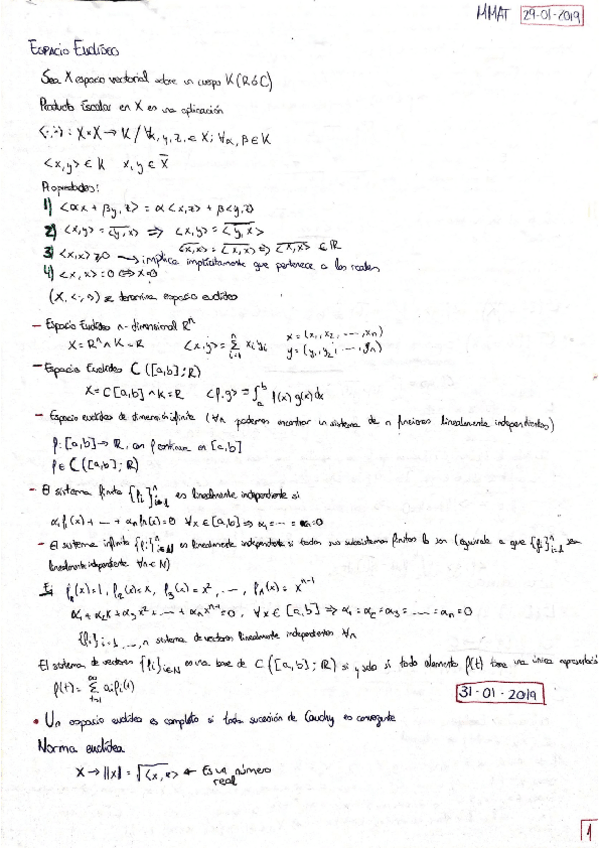 MMAT 29-01-2019
ESPACIO EUCLÍDEO
Sea X espacio vectorial sobre un cuerpo K (R ó C)
Producto Escalar en X es una aplicación
<·,·> : X×X → K / ∀x, y, z, ∈ X; ∀α, β ∈ K
<x,y> ∈ K x, y ∈ X
Propiedades:
1) <αx + βy, z> = α<x,z> + β<y,z>
2) <x,y> = <y,x>‾ ⇒ <x,y> = <y,x>‾
<x,x> = <x,x>‾ ⇔ <x,x> ∈ R
3) <x,x> ≥ 0 → implica implícitamente que pertenece a los reales
4) <x,x> = 0 ⇔ x=0
(X, <·,·>) se denomina espacio euclídeo
- Espacio Euclídeo n-dimensional Rⁿ
X = Rⁿ ∧ K = R <x,y> = Σ_{i=1}^{n} xᵢyᵢ x = (x₁, x₂, ..., xₙ)
y = (y₁, y₂, ..., yₙ)
- Espacio Euclídeo C([a,b];R)
X = C[a,b] ∧ K = R <f,g> = ∫_a^b f(x) g(x) dx
- Espacio euclídeo de dimensión infinita (∀n podemos encontrar un sistema de n funciones linealmente independientes)
f: [a,b] → R, con f continua en [a,b]
f ∈ C([a,b]; R)
- El sistema finito {fᵢ}ⁿᵢ₌₁ es linealmente independiente si
α₁f₁(x) + ... + αₙfₙ(x) = 0 ∀x ∈ [a,b] ⇒ α₁ = ... = αₙ = 0
- El sistema infinito {fᵢ}ᵢ∈N es linealmente independiente si todos sus subsistemas finitos lo son (equivale a que {fᵢ}ⁿᵢ₌₁ sea
linealmente independiente ∀n ∈ N)
Ej f₁(x) = 1, f₂(x) = x, f₃(x) = x², ..., fₙ(x) = xⁿ⁻¹
α₁ + α₂x + α₃x² + ... + αₙxⁿ⁻¹ = 0, ∀x ∈ [a,b] ⇒ α₁ = α₂ = α₃ = ... = αₙ = 0
{fᵢ}ᵢ₌₁,...,ₙ sistema de vectores linealmente independientes ∀n
El sistema de vectores {fᵢ}ᵢ∈N es una base de C([a,b]; R) si y solo si todo elemento f(t) tiene una única
f(t) = Σ_{i=1}^{∞} aᵢfᵢ(t)
31-01-2019
• Un espacio euclídeo es completo si toda sucesión de Cauchy es convergente
Norma euclídea
X → ||x|| = √<x,x> ← Es un número
real
1